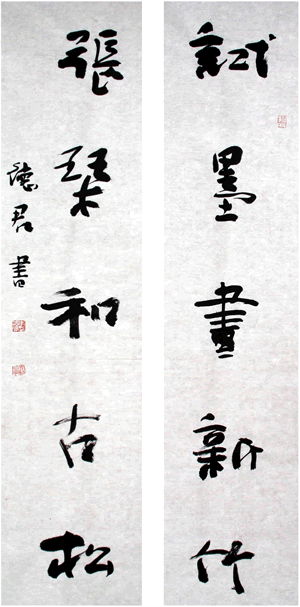 試墨書新竹
張琴和古松
德君書